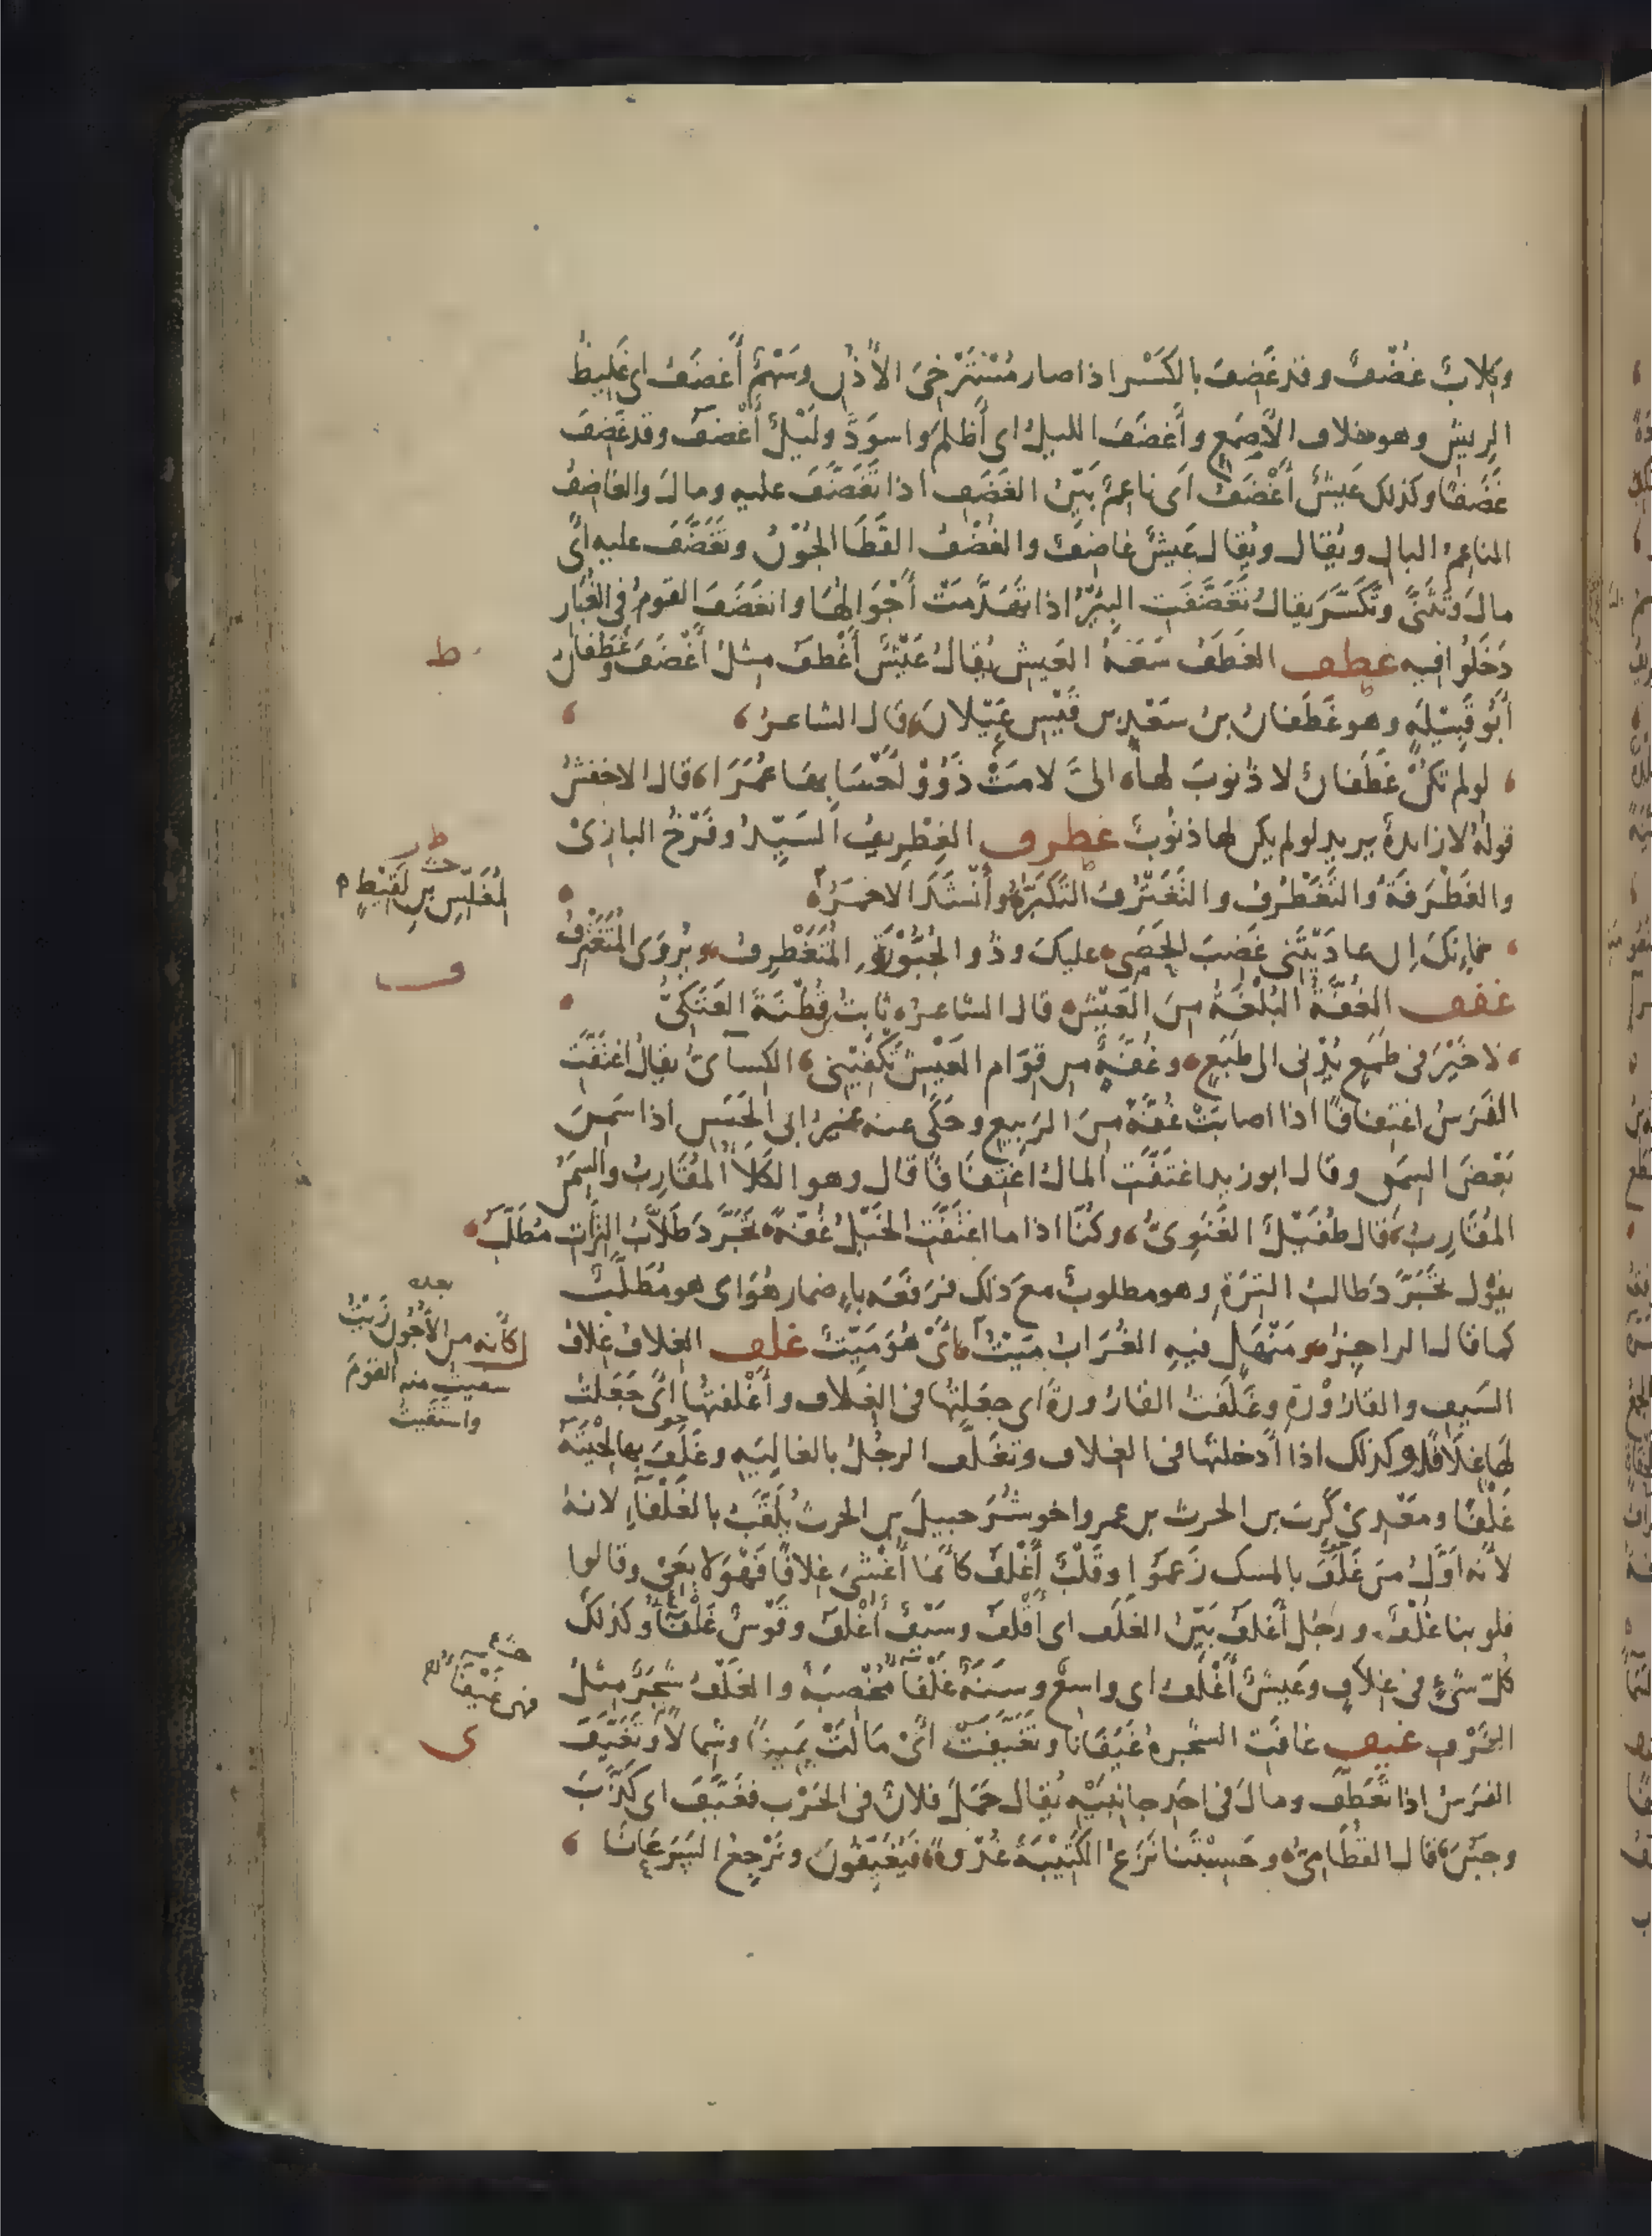 وكلابٌ غُضْفٌ وقد غَضِفَ بالكَسْر اذا صار مُسْتَرْخِىَ الأذُنِ وسَهْمٌ أَغْضَفُ اى غَلِيظُ
الرِيشِ وهو خلاف الأَصْمَعِ وأَغْضَفَ الليلُ اى أَظْلَمَ واسوَدَّ ولَيْلٌ أَغْضَفُ وقد غَضِفَ
غَضَفًا وكذلك عَيْشٌ أَغْضَفُ اى ناعِمٌ بَيّنُ الغَضَفِ اذا تَغَضَّفَ عليه ومالَ والغاضِفُ
الناعِمُ البالِ ويُقال ويُقال عَيْشٌ غاضِفٌ والغُضْفُ القَطَا الجُوْنُ وتَغَضَّفَ عليه أى
مالَ وتَثَنَّى وتَكَسَّرَ يقالُ تَغَضَّفَتِ البِئْرُ اذا تَهَدَّمَتْ أَجْوَالُهَا وانغَضَفَ القومُ فى الغُبَار
دَخَلُوا فيه غطف الغَطَفُ سَعَةُ العَيْشِ يُقالُ عَيْشٌ أَغْطَفُ مِثلُ أَغْضَفَ وغَطَفانُ
أَبُو قَبِيْلَةٍ وهو غَطَفانُ بنُ سَعْدِ بن قَيْسِ عَيْلانَ قال الشاعرُ
لو لم تكُنْ غَطَفانٌ لا ذُنوبَ لها الىَّ لامَتْ ذَوُوْ أَحْسَابِها عُمَرَا قال الاخفشُ
قولُهُ لا زايدةٌ يريد لو لم يكن لها ذنُوبٌ غطرف الغِطْرِيفُ السَيِّدُ وفَرْخُ البازِىْ
والغَطْرَفَةُ والتَغَطْرُفُ والتَغَتْرُفُ التَكَبُّرُ وأَنْشَدَ الاحمَرُ
فإِنكَ إِن عادَيْتَنى غَضِبَ الحَصَى عليكَ وذُو الجَبُّوْرَةِ المُتَغَطْرِفُ ويُروَى المُتَغَتْرِفُ
غفف الغُفَّةُ البُلْغَةُ مِنَ العَيْشِ قال الشاعرُ ثابتُ قُطْنَةَ العَتَكِىُّ
لا خَيْرَ فى طَمَعٍ يُدْنِى الى طَبَعٍ وغُفَّةٌ مِن قِوَامِ العَيْشِ تَكْفِيْنِى الكِسآىُّ يقالُ اغتَفَّتِ
الفَرَسُ اغتِفافًا اذا اصابَتْ غُفَّةً مِنَ الرَبِيعِ وحَكَى عنه غيرُ ابى الحَسَنِ اذا سَمِنَ
بَعْضَ السِمَنِ وقال ابو زيد اغتَفَّتِ المالُ اغْتِفَافًا قال وهو الكَلَأُ المُقَارِبُ والسِمَنُ
المُقَارِبُ قال طُفَيْلٌ الغَنَوِىُّ وكُنَّا اذا ما اغتَفَّتِ الخَيْلُ غُفَّةً تجَرَّدَ طَلَّابُ التِرَاتِ مُطَلَّبُ
يقول تَجَرَّدَ طالبُ التِرَةِ وهو مطلوبٌ معَ ذلك فرَفَعَه بإِضمار هُوَ اى هو مُطَلَّبٌ
كما قال الراجِزُ ومَنْهَلٍ فيهِ الغُرَابُ مَيْتُ اىْ هُوَ مَيِّتٌ غلف الغِلافُ غِلافُ
السَيفِ والقارُوْرَةِ وغَلَفْتُ القارُورةَ اى جعَلتُها فى الغِلاف وأَغْلَفتُها اىْ جَعَلتُ
لها غِلَافًا وكذلك اذا أدخلتَها فى الغِلاف وتغَلَّفَ الرجُلُ بالغالِيَةِ وغَلَفَ بها لِحْيَتَهُ
غَلْفًا ومَعْدِى كَرِبَ بن الحرث بن عمرو اخو شُرَحبيلَ بن الحرث يُلَقَّبُ بالغَلْفآءِ لانهُ
لأَنه أوَّلُ مَن غَلَّفَ بالمسك زَعمُوا وقَلْبٌ أَغْلَفُ كأَنَّمَا أُغْشِىَ غِلافًا فَهُوَ لا يَعِىْ وقالوا
قلوبنا غُلْفٌ ورجُل أَغلَفُ بَيّنُ الغَلَفِ اى أَقْلَفُ وسَيْفٌ أَغْلَفُ وقَوْسٌ غَلْفآءُ وكذلكَ
كُلّ شىْءٍ فى غِلافٍ وعَيشٌ أَغْلَفُ اى واسعٌ وسنَةٌ غَلْفَآءُ مُخْصِبَةٌ والغَلْفُ شَجَرٌ مِثلُ
الغَرْفِ غيف غافَتِ الشجرةُ غَيَفَانًا وتَغَيَّفَتْ اىْ مَالَتْ يَمِينًا وشِمالاً وتَغَيَّفَ
الفَرَسُ اذا تعَطَّفَ ومالَ فى احَدِ جانِبَيْهِ يُقال حَمَلَ فلانٌ فى الحَرْبِ فغَيَّفَ اى كَذَبَ
وجَبُنَ قال القُطَامِىُّ وحَسِبْتَنَا نَزَعُ الكَتِيْبَةَ غُدْوةً فيُغَيِّفُونَ ونَرْجِعُ السَرَعَانَا
ط
طر
المُغَلِّسِ بن لَقِيْطٍ
ف
بعده
كأنه من الأُجُونِ زَيْتُ
سقيتُ منه القَوْمَ
واستَقَيتُ
ى